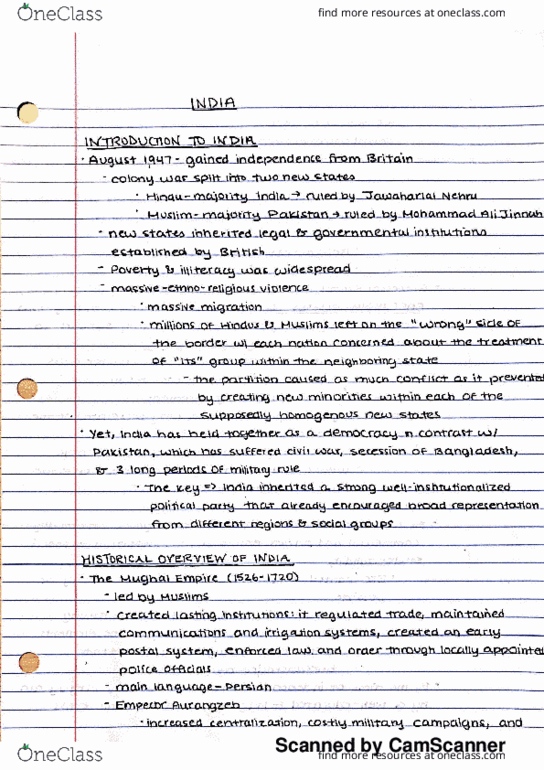 OneClass
find more resources at oneclass.com
INDIA
INTRODUCTION TO INDIA
· August 1947 - gained independence from Britain
- colony was split into two new states
· Hindu-majority India → ruled by Jawaharlal Nehru
· Muslim-majority Pakistan → ruled by Mohammad Ali Jinnah
- new states inherited legal & governmental institutions
established by British
- Poverty & illiteracy was widespread
- massive-ethno-religious violence
· massive migration
· millions of Hindus & Muslims left on the "wrong" side of
the border w/ each nation concerned about the treatment
of "its" group within the neighboring state
- the partition caused as much conflict as it prevente
by creating new minorities within each of the
supposedly homogenous new states
· Yet, India has held together as a democracy n contrast w/
Pakistan, which has suffered civil war, secession of Bangladesh,
& 3 long periods of military rule
· The key => India inherited a strong well-institutionalized
political party that already encouraged broad representation
from different regions & social groups
HISTORICAL OVERVIEW OF INDIA
· The Mughal Empire (1526-1720)
- led by Muslims
· created lasting institutions: it regulated trade, maintained
communications and irrigation systems, created an early
postal system, enforced law and order through locally appointe
police officials
- main language - Persian
- Emperor Aurangzeb
· increased centralization, costly military campaigns, and
Scanned by CamScanner
OneClass
find more resources at oneclass.com